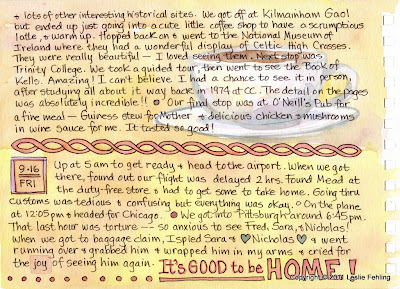 + lots of other interesting historical sites. We got off at Kilmainham Gaol
but ended up just going into a cute little coffee shop to have a scrumptious
latte, + warm up. Hopped back on + went to the National Museum of
Ireland where they had a wonderful display of Celtic High Crosses.
They were really beautiful — I loved seeing them. Next stop was
Trinity College. We took a guided tour, then went to see the Book of
Kells. Amazing! I can't believe I had a chance to see it in person,
after studying all about it way back in 1974 at CC. The detail on the pages
was absolutely incredible!! Our final stop was at O'Neill's Pub for
a fine meal — Guiness stew for Mother + delicious chicken + mushrooms
in wine sauce for me. It tasted so good!
9·16
FRI
Up at 5 am to get ready + head to the airport. When we got
there, found out our flight was delayed 2 hrs. Found Mead at
the duty-free store + had to get some to take home. Going thru
customs was tedious + confusing but everything was okay. On the plane
at 12:05 pm + headed for Chicago. We got into Pittsburgh around 6:45 pm.
That last hour was torture -- so anxious to see Fred, Sara, + Nicholas!
When we got to baggage claim, I spied Sara + Nicholas + went
running over + grabbed him + wrapped him in my arms + cried for
the joy of seeing him again. It's GOOD to be HOME!
Copyright © Leslie Fehling